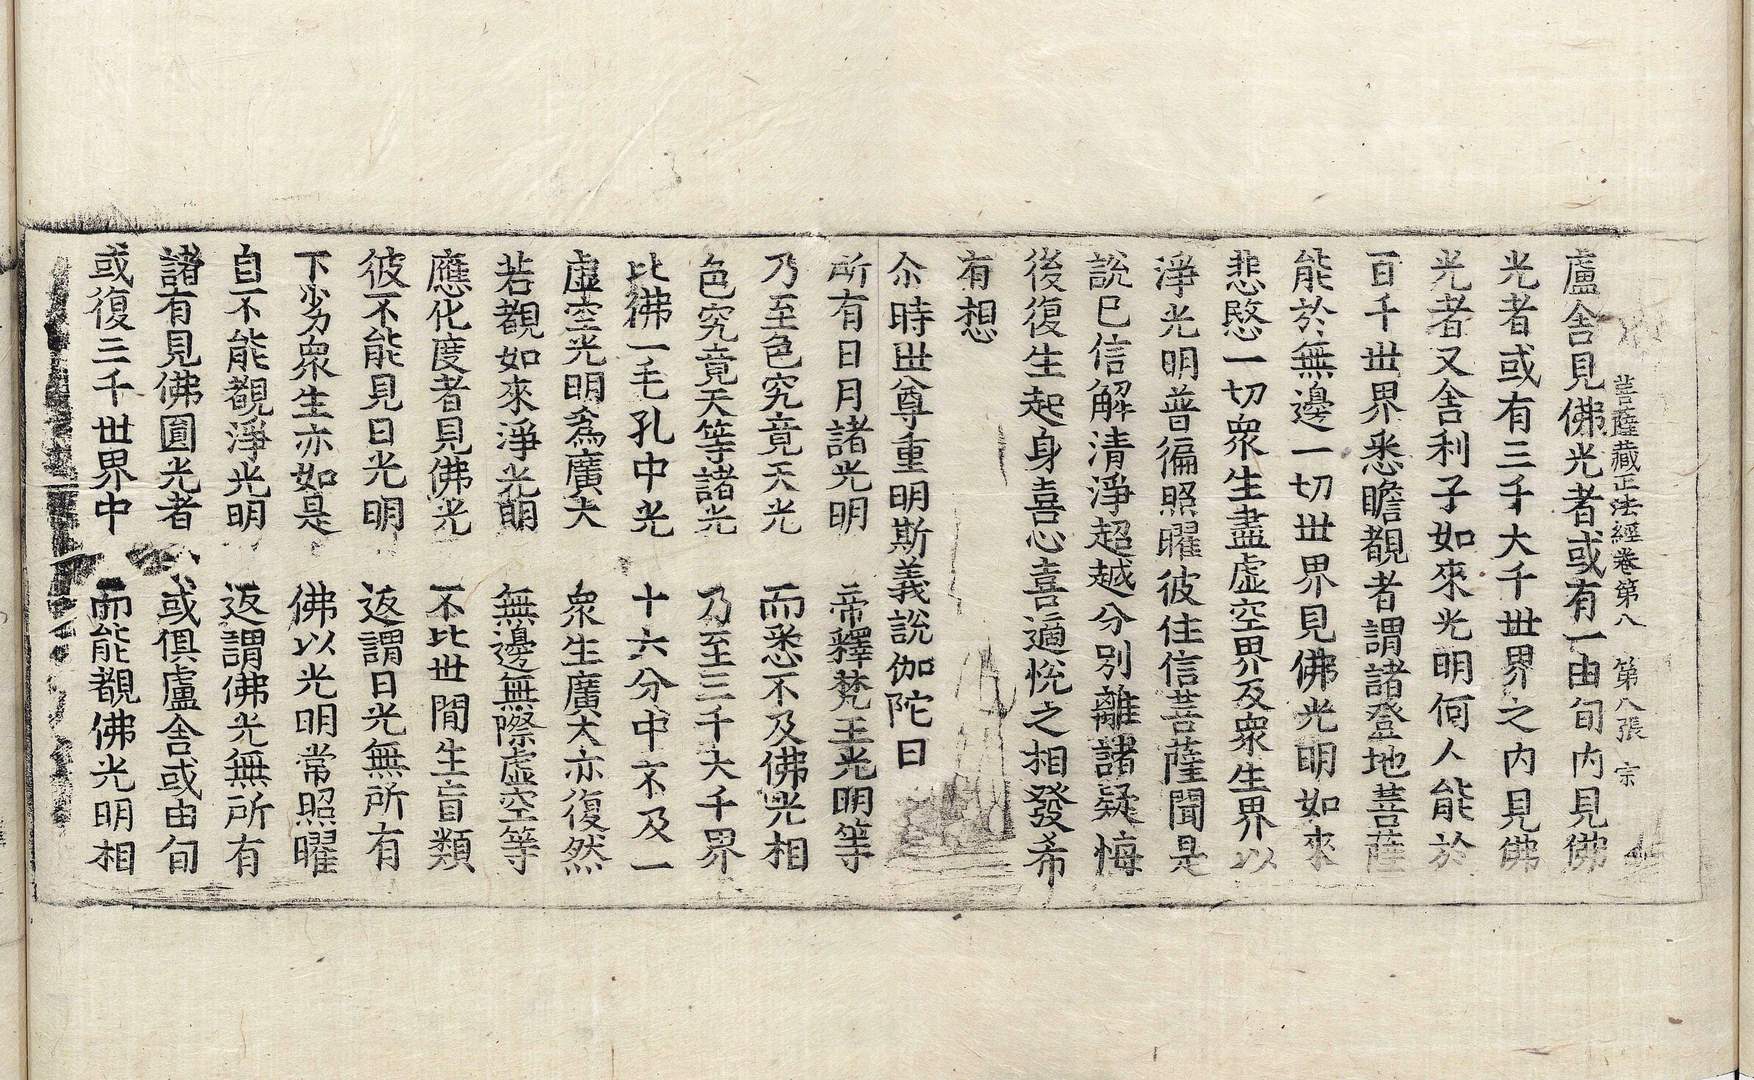 菩薩藏正法經卷第八　第八張　宗
盧舍見佛光者或有一由旬內見佛
光者或有三千大千世界之內見佛
光者又舍利子如來光明何人能於
百千世界悉瞻覩者謂諸登地菩薩
能於無邊一切世界見佛光明如來
悲愍一切衆生盡虛空界及衆生界以
淨光明普徧照曜彼住信菩薩聞是
說已信解清淨超越分別離諸疑悔
後復生起身喜心喜適悅之相發希
有想
尒時世尊重明斯義說伽陀曰
所有日月諸光明　帝釋梵王光明等
乃至色究竟天光　而悉不及佛光相
色究竟天等諸光　乃至三千大千界
比佛一毛孔中光　十六分中不及一
虛空光明爲廣大　衆生廣大亦復然
若觀如來淨光明　無邊無際虛空等
應化度者見佛光　不比世間生盲類
彼不能見日光明　返謂日光無所有
下劣衆生亦如是　佛以光明常照曜
自不能觀淨光明　返謂佛光無所有
諸有見佛圓光者　或俱盧舍或由旬
或復三千世界中　而能覩佛光明相